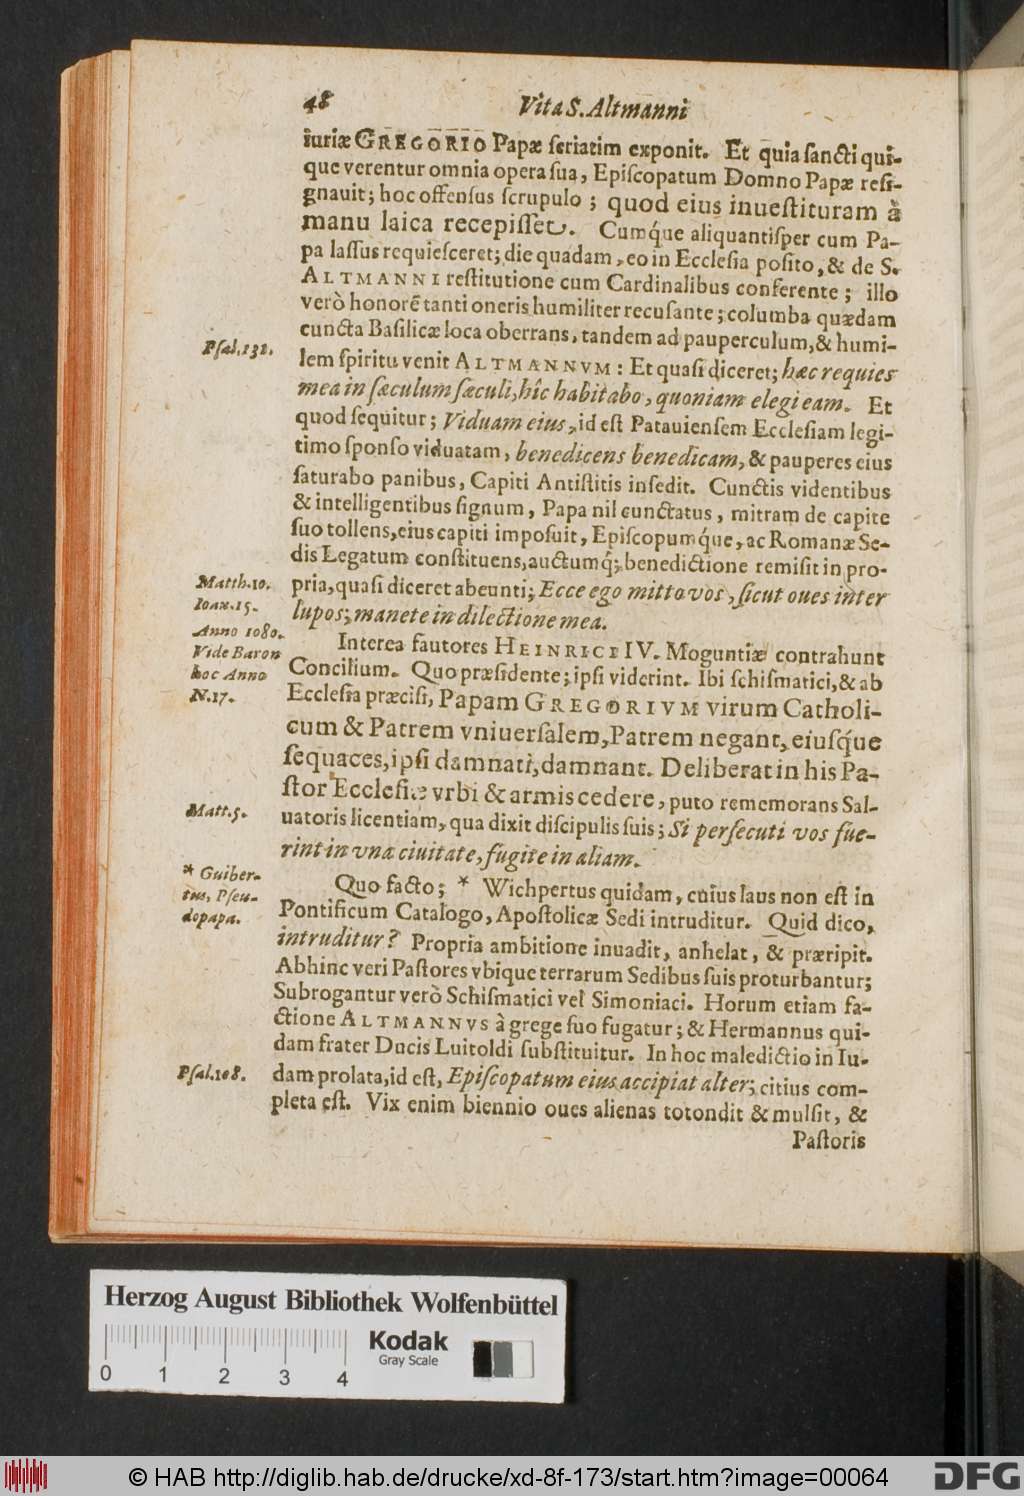 48
Vita S. Altmanni
iuriæ GREGORIO Papæ ſeriatim exponit. Et quia ſancti qui-
que verentur omnia opera ſua, Epiſcopatum Domno Papæ reſi-
gnauit; hoc offenſus ſcrupulo; quod eius inueſtituram à
manu laica recepiſſet. Cumq́ue aliquantiſper cum Pa-
pa laſſus requieſceret; die quadam, eo in Eccleſia poſito, & de S.
ALTMANNI reſtitutione cum Cardinalibus conferente; illo
verò honorē tanti oneris humiliter recuſante; columba quædam
cuncta Baſilicæ loca oberrans, tandem ad pauperculum, & humi-
Pſal. 131.
lem ſpiritu venit ALTMANNVM: Et quaſi diceret; hæc requies
mea in ſæculum ſæculi, hîc habitabo, quoniam elegi eam. Et
quod ſequitur; Viduam eius, id eſt Patauienſem Eccleſiam legi-
timo ſponſo viduatam, benedicens benedicam, & pauperes eius
ſaturabo panibus, Capiti Antiſtitis inſedit. Cunctis videntibus
& intelligentibus ſignum, Papa nil cunctatus, mitram de capite
ſuo tollens, eius capiti impoſuit, Epiſcopumq́ue, ac Romanæ Se-
dis Legatum conſtituens, auctumq́; benedictione remiſit in pro-
Matth. 10.
pria, quaſi diceret abeunti; Ecce ego mitto vos, ſicut oues inter
Ioan. 15.
lupos; manete in dilectione mea.
Anno 1080.
Vide Baron
hoc Anno
N. 17.
Interea fautores HEINRICI IV. Moguntiæ contrahunt
Concilium. Quo præſidente; ipſi viderint. Ibi ſchiſmatici, & ab
Eccleſia præciſi, Papam GREGORIVM virum Catholi-
cum & Patrem vniuerſalem, Patrem negant, eiuſq́ue
ſequaces, ipſi damnati, damnant. Deliberat in his Pa-
ſtor Eccleſiæ vrbi & armis cedere, puto rememorans Sal-
Matt. 5.
uatoris licentiam, qua dixit diſcipulis ſuis; Si perſecuti vos fue-
rint in vna ciuitate, fugite in aliam.
* Guiber-
tus, Pſeu-
dopapa.
Quo facto; * Wichpertus quidam, cuius laus non eſt in
Pontificum Catalogo, Apoſtolicæ Sedi intruditur. Quid dico,
intruditur? Propria ambitione inuadit, anhelat, & præripit.
Abhinc veri Paſtores vbique terrarum Sedibus ſuis proturbantur;
Subrogantur verò Schiſmatici vel Simoniaci. Horum etiam fa-
ctione ALTMANNVS à grege ſuo fugatur; & Hermannus qui-
dam frater Ducis Luitoldi ſubſtituitur. In hoc maledictio in Iu-
Pſal. 108.
dam prolata, id eſt, Epiſcopatum eius accipiat alter; citius com-
pleta eſt. Vix enim biennio oues alienas totondit & mulſit, &
Paſtoris
Herzog August Bibliothek Wolfenbüttel
Kodak
Gray Scale
0 1 2 3 4
© HAB http://diglib.hab.de/drucke/xd-8f-173/start.htm?image=00064
DFG